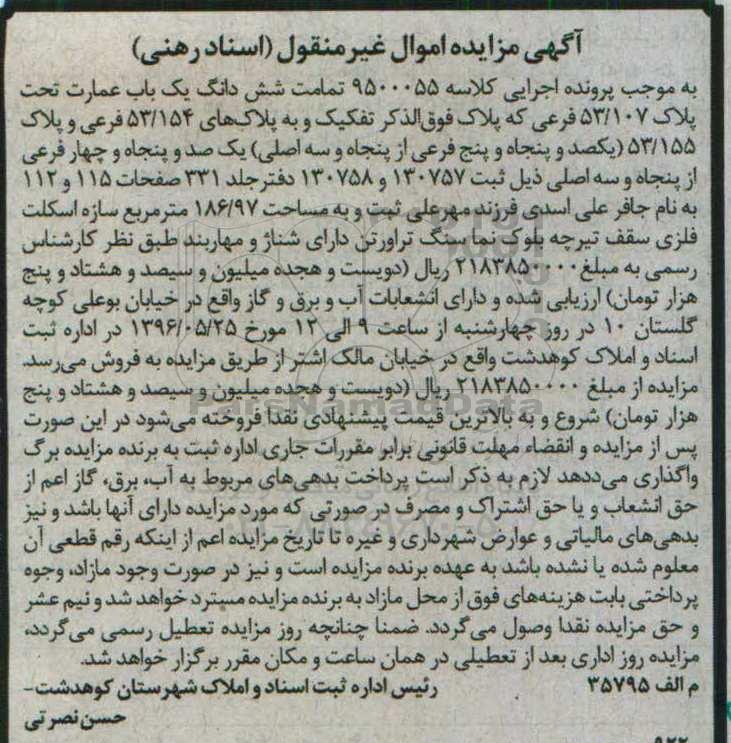 آگهی مزایده اموال غیرمنقول (اسناد رهنی)
به موجب پرونده اجرایی کلاسه ۹۵۰۰۰۵۵ تمامت شش دانگ یک باب عمارت تحت
پلاک ۵۳/۱۰۷ فرعی که پلاک فوق‌الذکر تفکیک و به پلاک‌های ۵۳/۱۵۴ فرعی و پلاک
۵۳/۱۵۵ (یکصد و پنجاه و پنج فرعی از پنجاه و سه اصلی) یک صد و پنجاه و چهار فرعی
از پنجاه و سه اصلی ذیل ثبت ۱۳۰۷۵۷ و ۱۳۰۷۵۸ دفتر جلد ۳۳۱ صفحات ۱۱۵ و ۱۱۲
به نام جافر علی اسدی فرزند مهرعلی ثبت و به مساحت ۱۸۶/۹۷ مترمربع سازه اسکلت
فلزی سقف تیرچه بلوک نما سنگ تراورتن دارای شناژ و مهاربند طبق نظر کارشناس
رسمی به مبلغ ۲۱۸۳۸۵۰۰۰۰ ریال (دویست و هجده میلیون و سیصد و هشتاد و پنج
هزار تومان) ارزیابی شده و دارای انشعابات آب و برق و گاز واقع در خیابان بوعلی کوچه
گلستان ۱۰ در روز چهارشنبه از ساعت ۹ الی ۱۲ مورخ ۱۳۹۶/۰۵/۲۵ در اداره ثبت
اسناد و املاک کوهدشت واقع در خیابان مالک اشتر از طریق مزایده به فروش می‌رسد.
مزایده از مبلغ ۲۱۸۳۸۵۰۰۰۰ ریال (دویست و هجده میلیون و سیصد و هشتاد و پنج
هزار تومان) شروع و به بالاترین قیمت پیشنهادی نقدا فروخته می‌شود در این صورت
پس از مزایده و انقضاء مهلت قانونی برابر مقررات جاری اداره ثبت به برنده مزایده برگ
واگذاری می‌ددهد لازم به ذکر است پرداخت بدهی‌های مربوط به آب، برق، گاز اعم از
حق انشعاب و یا حق اشتراک و مصرف در صورتی که مورد مزایده دارای آنها باشد و نیز
بدهی‌های مالیاتی و عوارض شهرداری و غیره تا تاریخ مزایده اعم از اینکه رقم قطعی آن
معلوم شده یا نشده باشد به عهده برنده مزایده است و نیز در صورت وجود مازاد، وجوه
پرداختی بابت هزینه‌های فوق از محل مازاد به برنده مزایده مسترد خواهد شد و نیم عشر
و حق مزایده نقدا وصول می‌گردد. ضمنا چنانچه روز مزایده تعطیل رسمی می‌گردد،
مزایده روز اداری بعد از تعطیلی در همان ساعت و مکان مقرر برگزار خواهد شد.
م الف ۳۵۷۹۵ رئیس اداره ثبت اسناد و املاک شهرستان کوهدشت-
حسن نصرتی
ParsNamadData